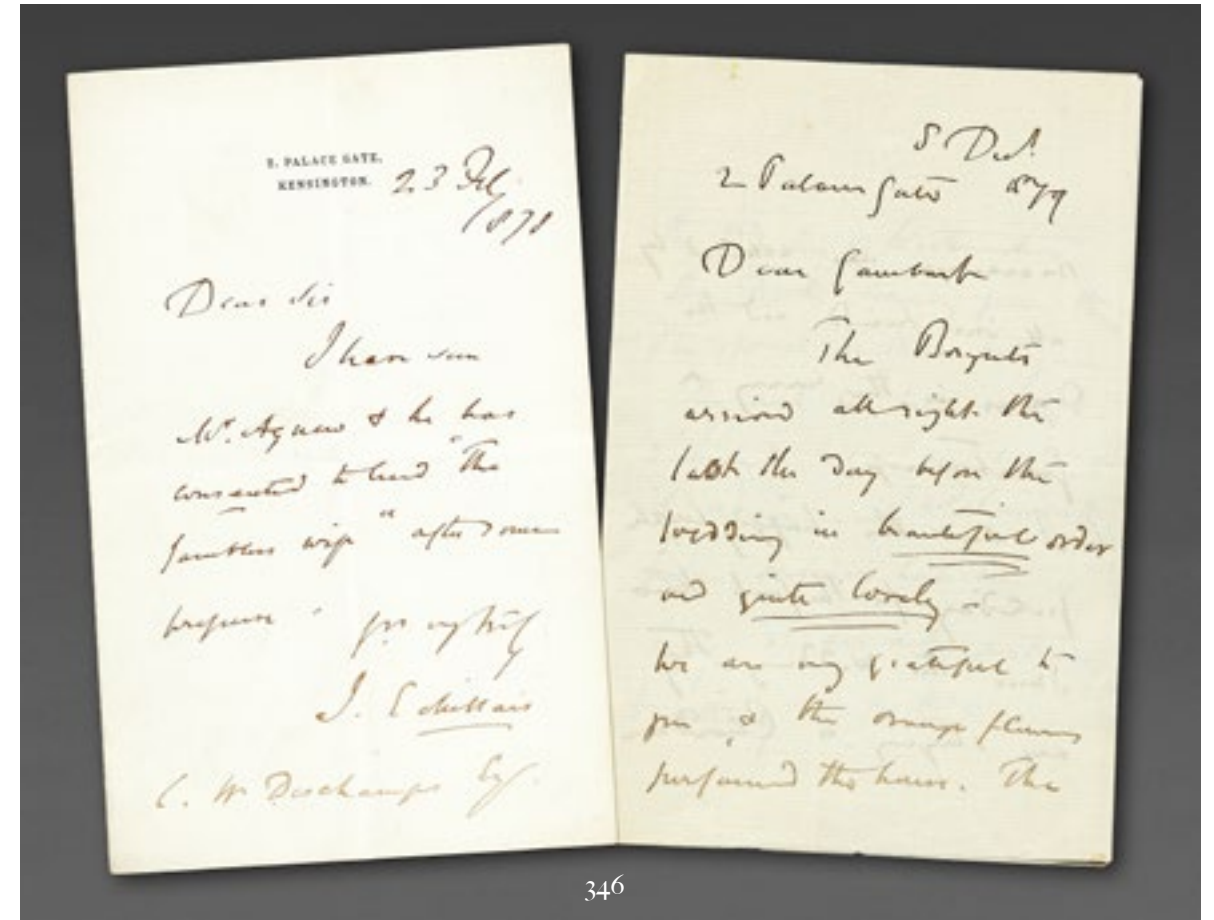 2, PALACE GATE,
KENSINGTON.
23 Feb
1878
Dear Sir
I have seen
Mr. Agnew & he has
consented to lend "The
wife" after some
pressure. yrs very truly
J. E Millais
C. W Deschamps Esq.
5 Dec.
2 Palace Gate 1879
Dear Gambart
The Boquets
arrived all right the
last the day before the
wedding in beautiful order
and quite lovely -
We are very grateful to
you & the orange flowers
perfumed the house. The
346